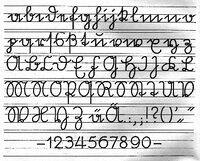 abcdefghijklmno
pqrſsßtŭvwxyz
ABCDEFGHIJKL
MNOPQRSTUV
WXYZäÄ.,;,!?()',"
-1234567890-